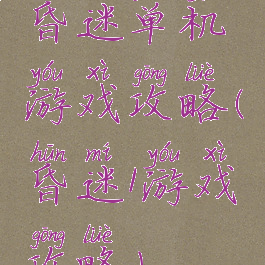 昏迷单机
yóu xì gōng lüè
游戏攻略(
hūn mí yóu xì
昏迷/游戏
gōng lüè
攻略)